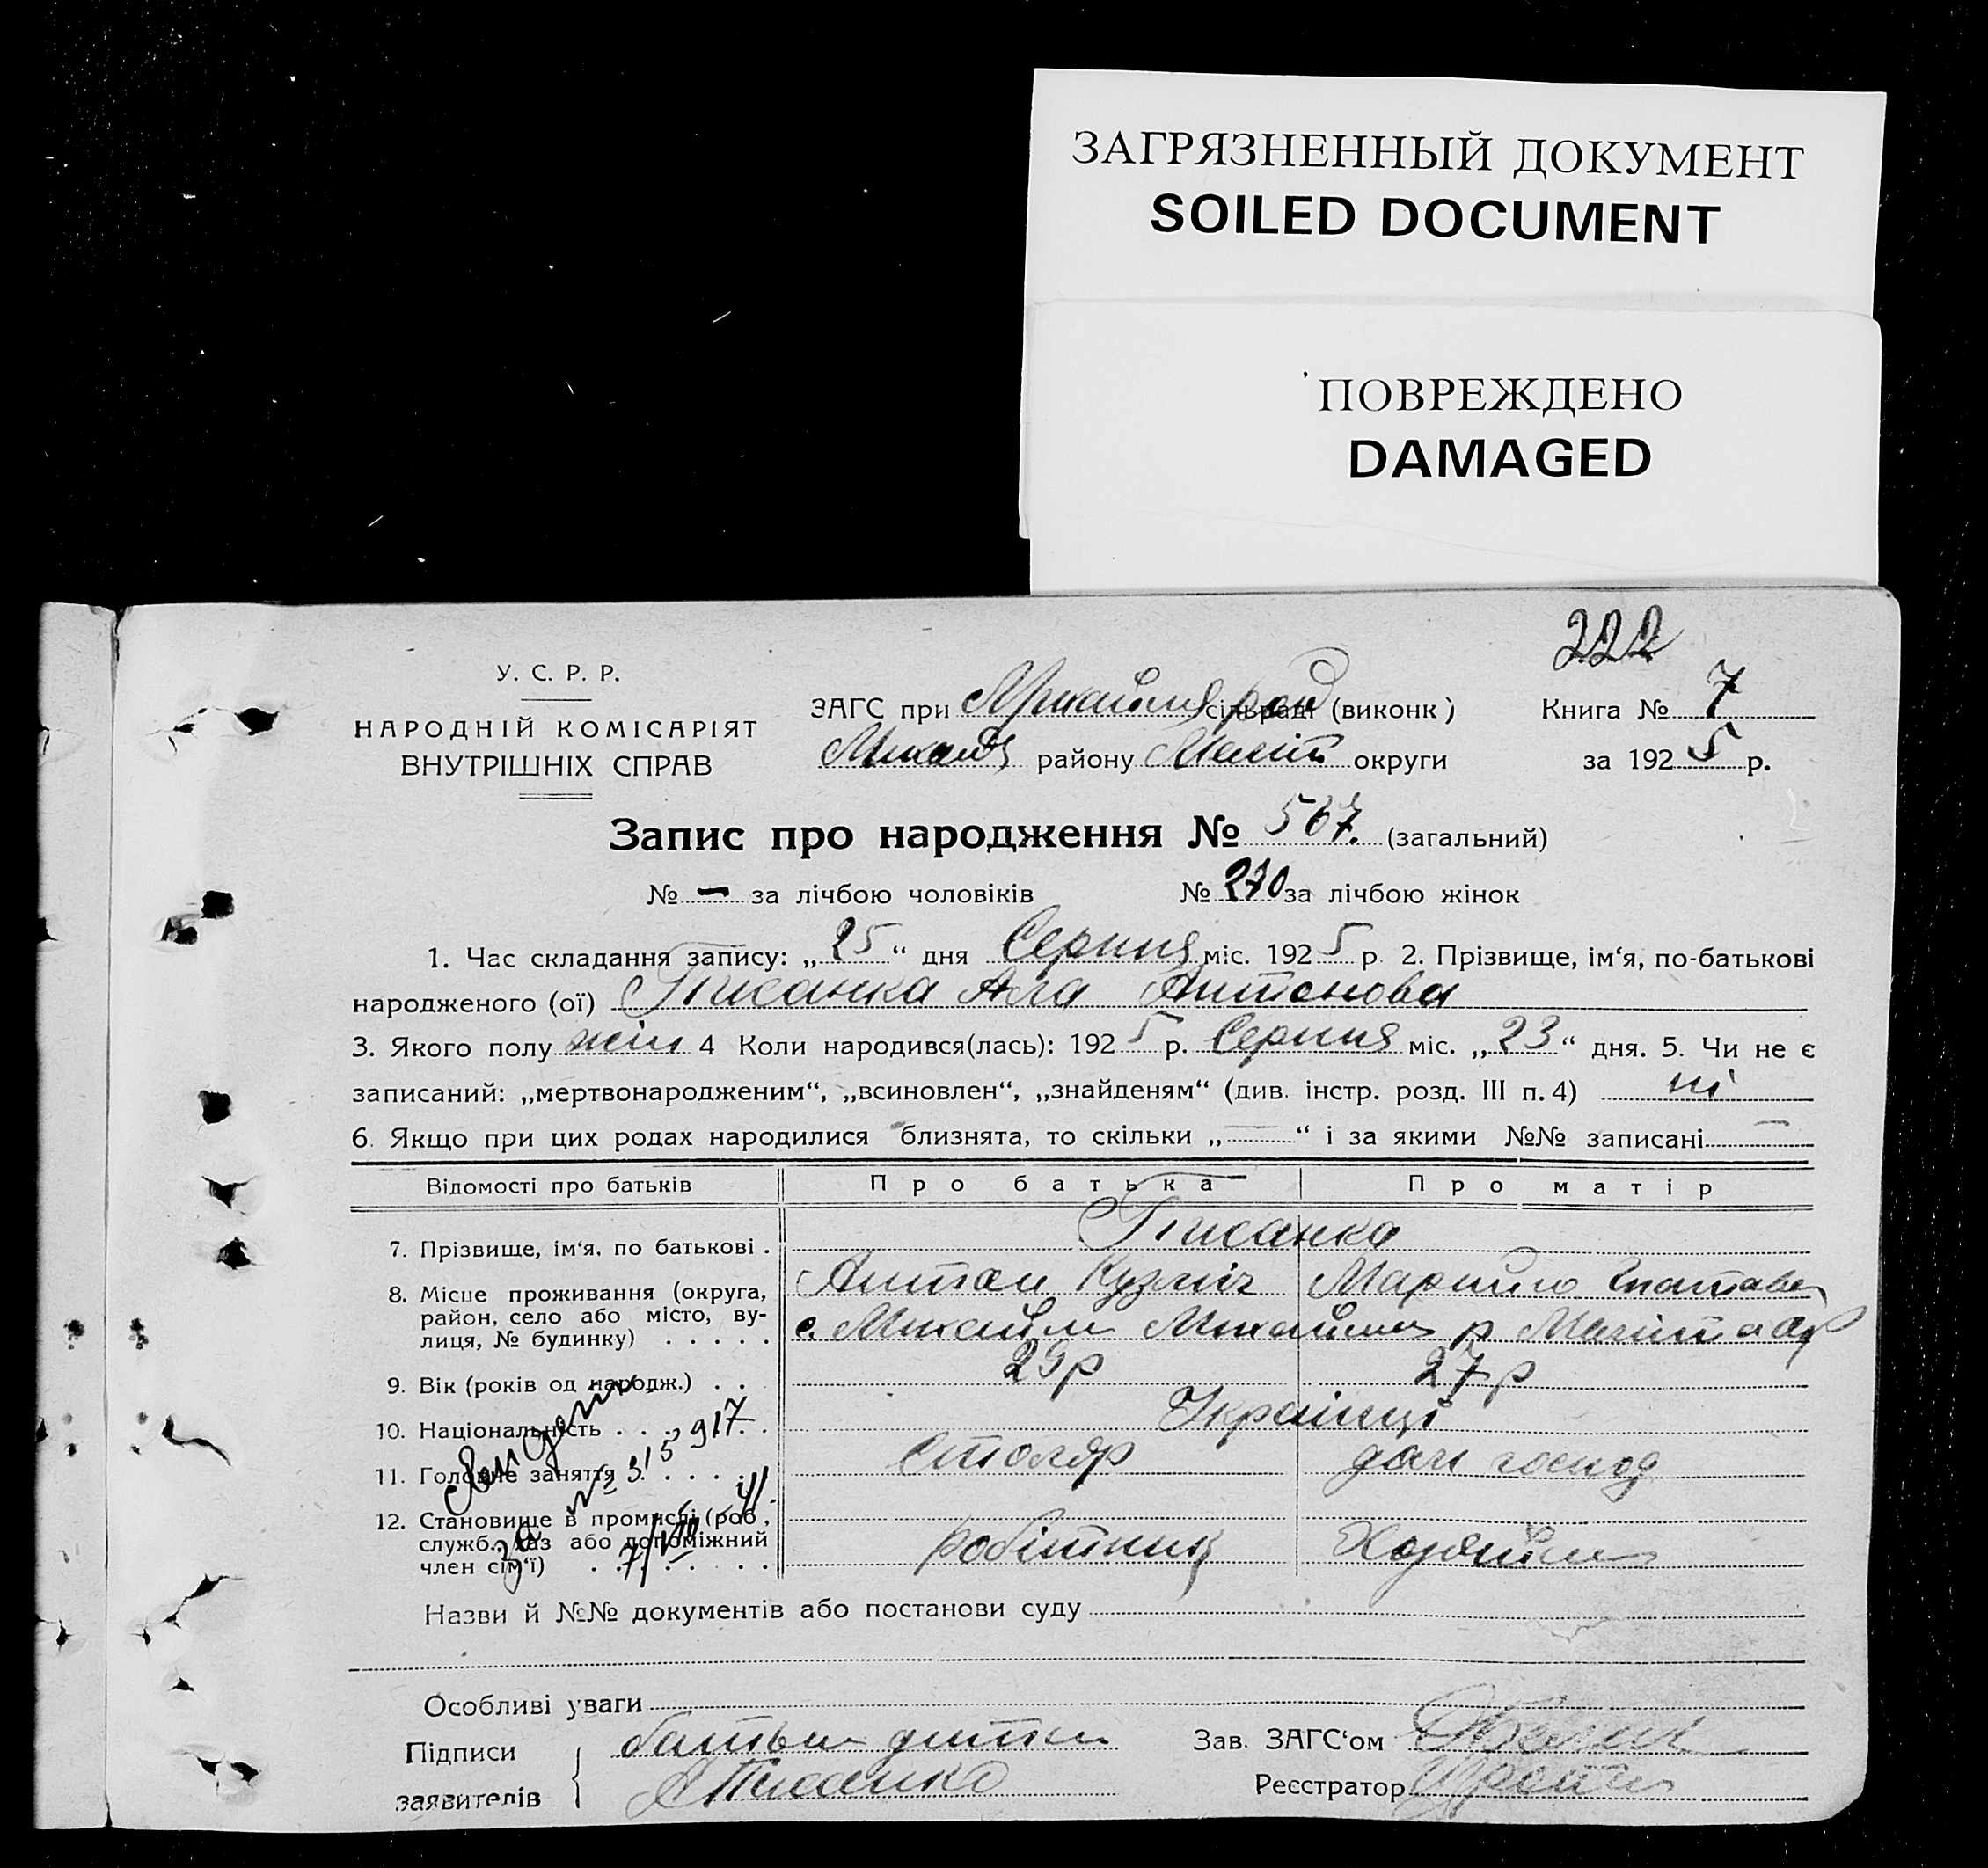 ЗАГРЯЗНЕННЫЙ ДОКУМЕНТ
SOILED DOCUMENT
ПОВРЕЖДЕНО
DAMAGED
222
У. С. Р. Р.
НАРОДНІЙ КОМІСАРІЯТ
ВНУТРІШНІХ СПРАВ
ЗАГС при сільраді (виконк) Книга № 7
району округи за 1925 р.
Запис про народження № 567. (загальний)
№ — за лічбою чоловіків № 270 за лічбою жінок
1. Час складання запису: „25“ дня Серпня міс. 1925 р. 2. Прізвище, ім‘я, по-батькові
народженого (ої) Писанка Ала Антонова
3. Якого полу жін 4 Коли народився(лась): 1925 р. Серпня міс. „23“ дня. 5. Чи не є
записаний: „мертвонародженим“, „всиновлен“, „знайденям“ (див. інстр. розд. III п. 4) ні
6. Якщо при цих родах народилися близнята, то скільки „—“ і за якими №№ записані —
Відомості про батьків Про батька Про матір
7. Прізвище, ім‘я, по батькові . Писанка
8. Місце проживання (округа, район, село або місто, вулиця, № будинку) . . . . . Антон Кузміч
9. Вік (років од народж.) . . 29 р 27 р
10. Національність . . . . . . Українці
11. Головне заняття . . . . . . столяр дом господ
12. Становище в промислі (роб., служб., хаз або допоміжний член сім‘ї) . . . . . . . робітник
№ 315917
Назви й №№ документів або постанови суду
Особливі уваги
Підписи батько дитини Зав. ЗАГС‘ом
заявителів Писанка Реєстратор